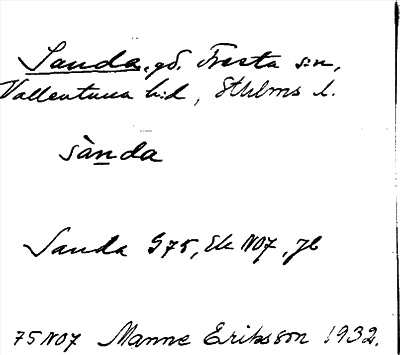 Sanda, gd. Fresta s:n,
Vallentuna h:d, Sthlms l.
sànda
Sanda G75, Ek N07, Jb
75 N07 Manne Eriksson 1932.